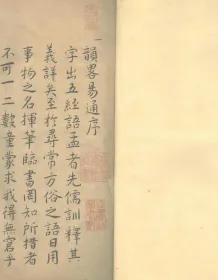 韻畧易通序
字出五經語孟者先儒訓釋其
義詳矣至於尋常方俗之語日用
事物之名揮筆臨書罔知所措者
不可一二數童蒙求我得無窘乎